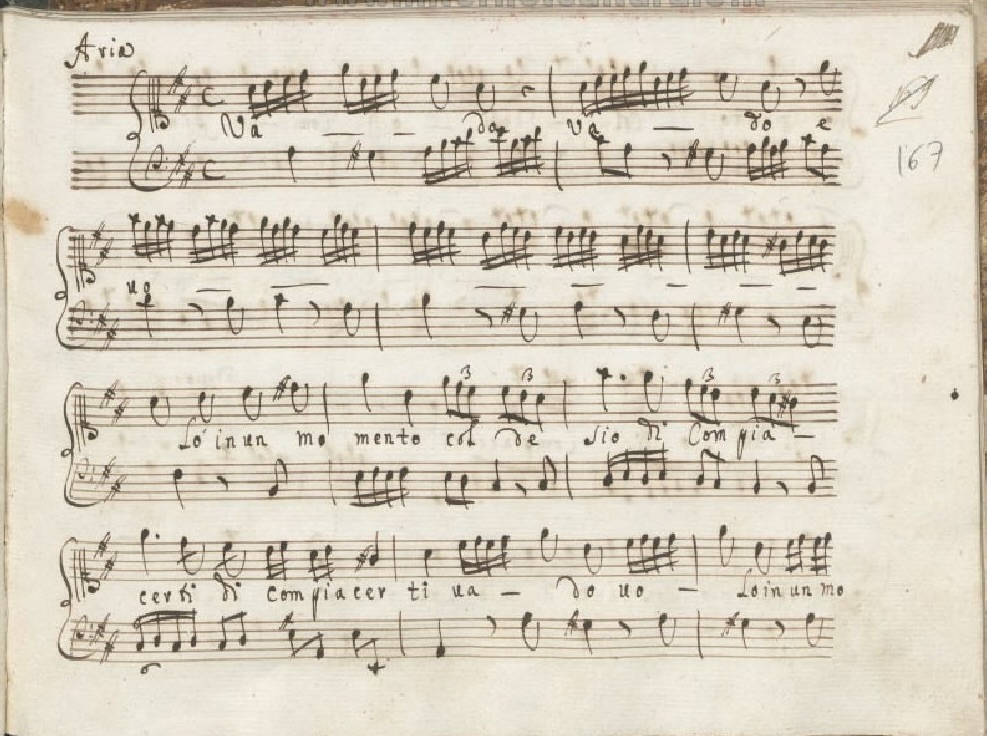 Aria
Va — — do va — do e
167
uo — — — — — — —
Lo in un mo mento col de sio di Compia —
3 3 3 3
certi di Compiacer ti va — do uo — Lo in un mo